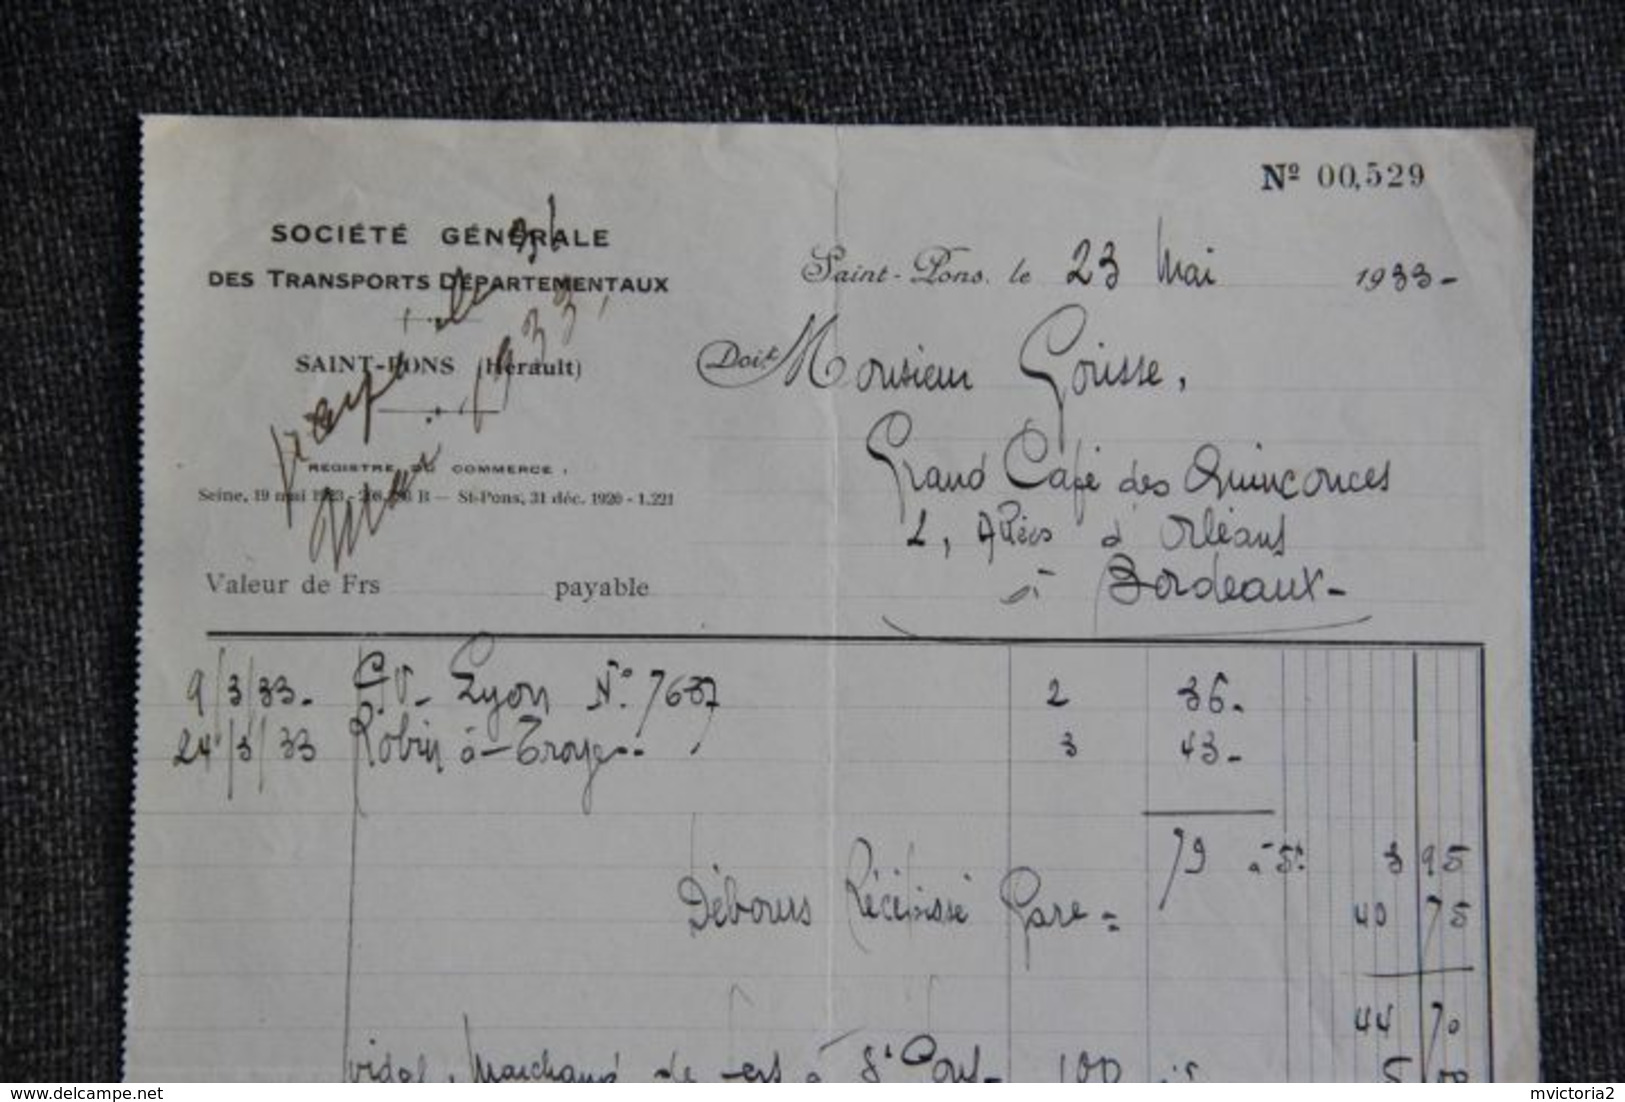 Nº 00,529
SOCIÉTÉ GÉNÉRALE
DES TRANSPORTS DÉPARTEMENTAUX
Saint-Pons, le 23 Mai 1933-
SAINT-PONS (Hérault)
1933
Doit Monsieur Goisse,
REGISTRE DU COMMERCE
Grand Café des Quinconces
Seine, 19 mai B — St-Pons, 31 déc. 1920 - 1.221
2, Allées d'Orléans
à Bordeaux-
Valeur de Frs payable
9/3/33- G.V- Lyon N° 7637 2 36-
24/3/33 Robin à Troyes 3 43-
79 à 5 3 95
Débours Récépissé Gare = 40 75
44 70
Vidal, Marchand de à St Pons- 100 5 00
delcampe.net
mvictoria2